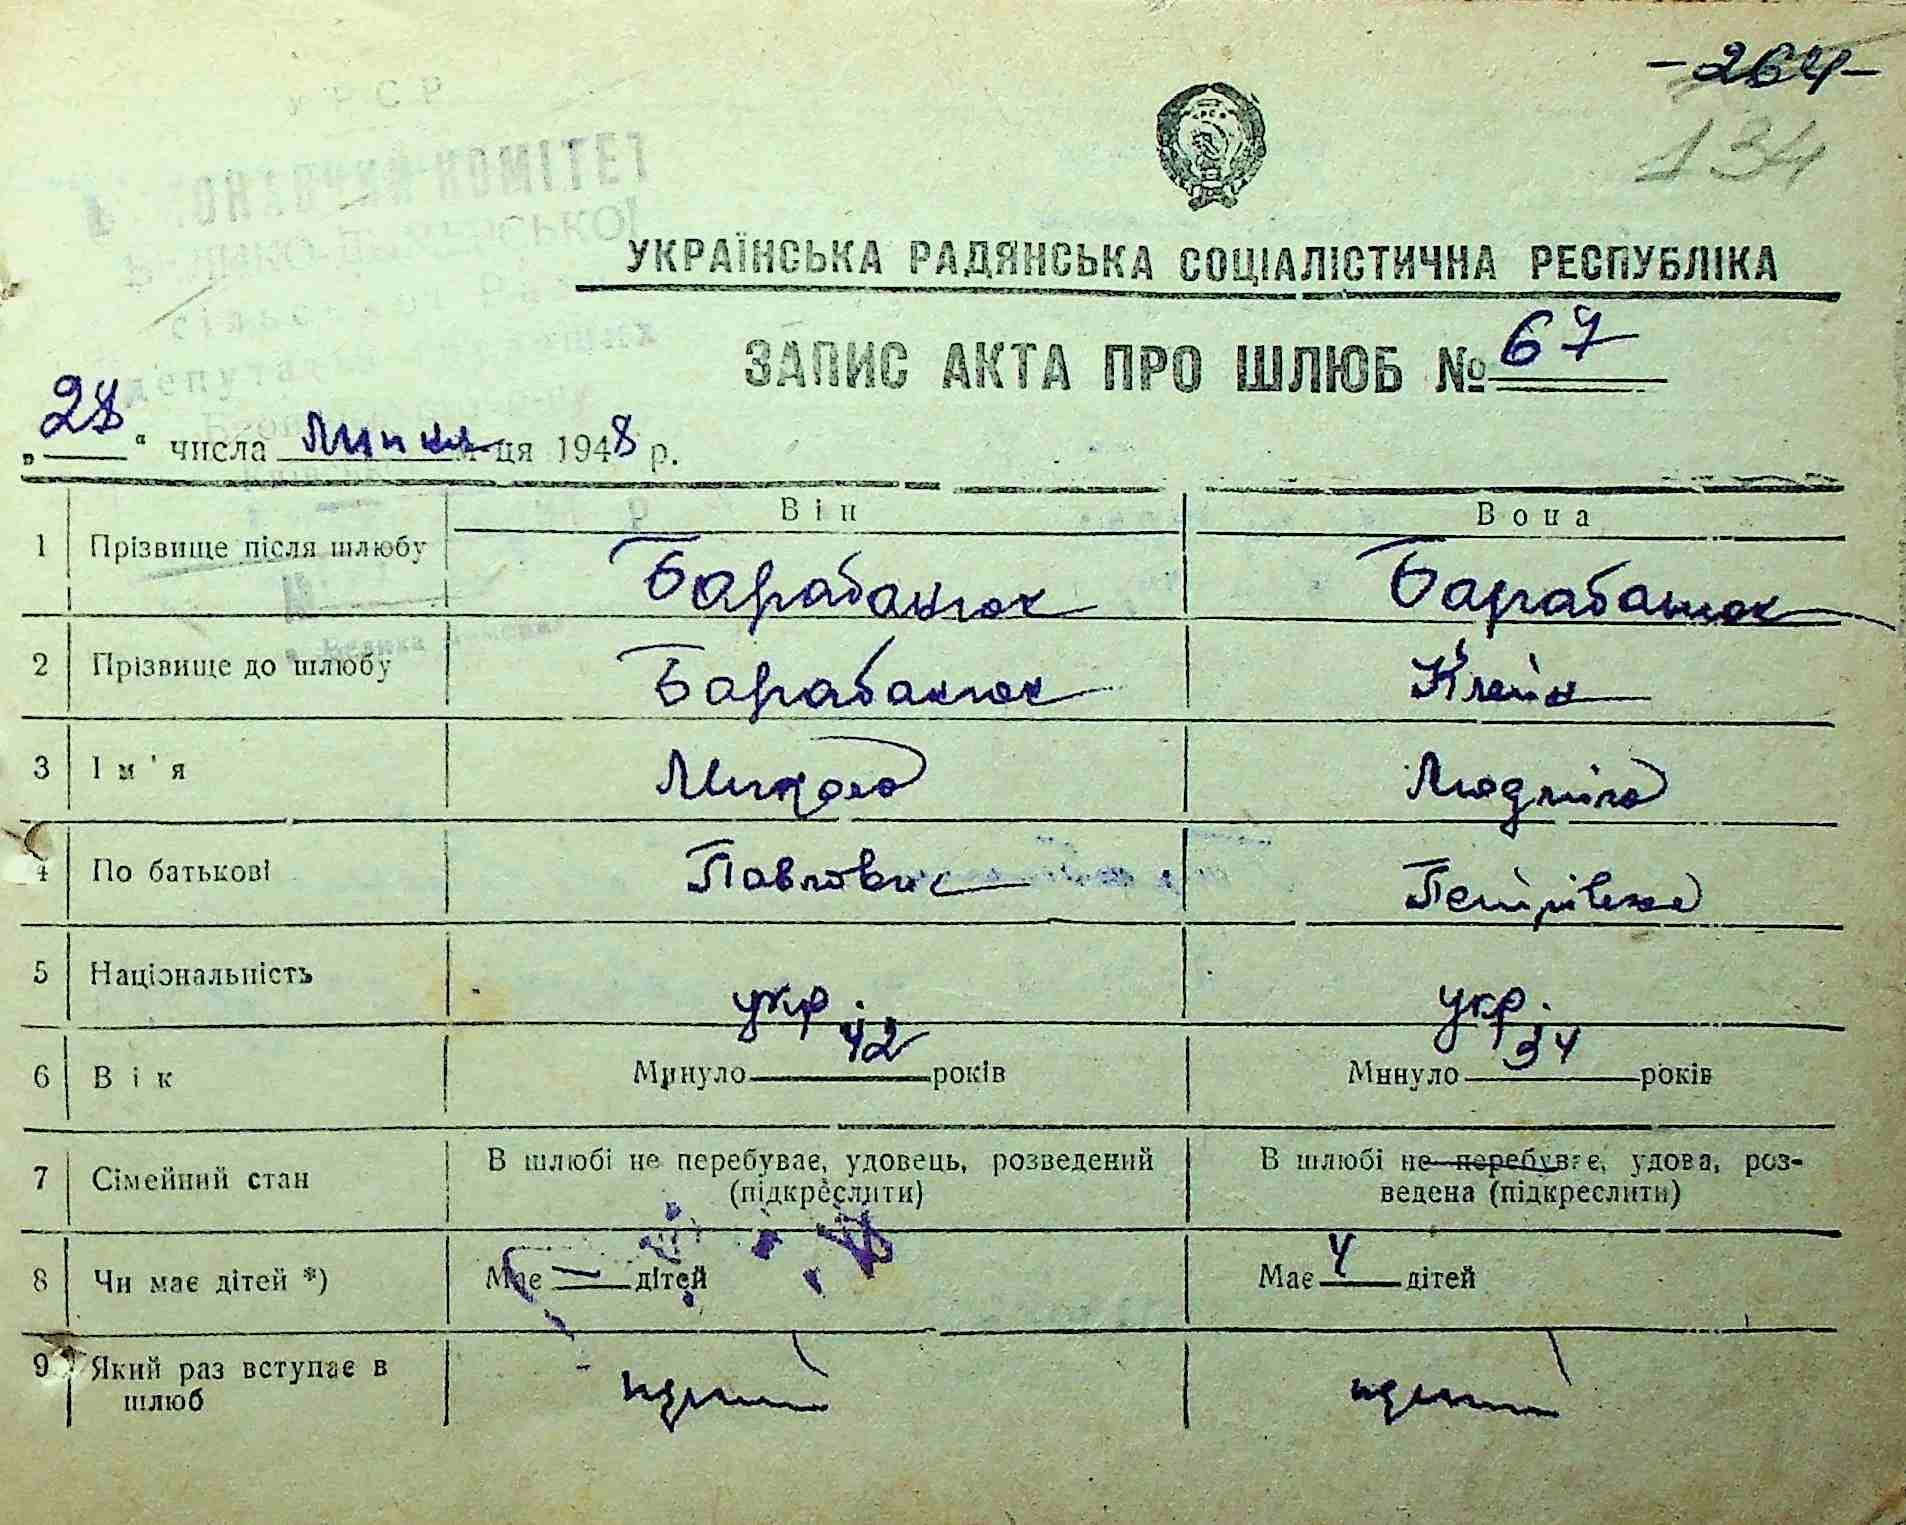 -264-
134
УРСР
КОМІТЕТ
УКРАЇНСЬКА РАДЯНСЬКА СОЦІАЛІСТИЧНА РЕСПУБЛІКА
ЗАПИС АКТА ПРО ШЛЮБ № 67
„28“ числа Липня м-ця 1948 р.
Він Вона
1 Прізвище після шлюбу Барабанюк Барабанюк
2 Прізвище до шлюбу Барабанюк Клейн
3 Ім'я Микола Людміла
4 По батькові Павлович Петрівна
5 Національність укр. укр.
6 Вік Минуло 42 років Минуло 34 років
7 Сімейний стан В шлюбі не перебуває, удовець, розведений (підкреслити) В шлюбі не перебуває, удова, роз-
ведена (підкреслити)
8 Чи має дітей *) Має — дітей Має 4 дітей
9 Який раз вступає в
шлюб